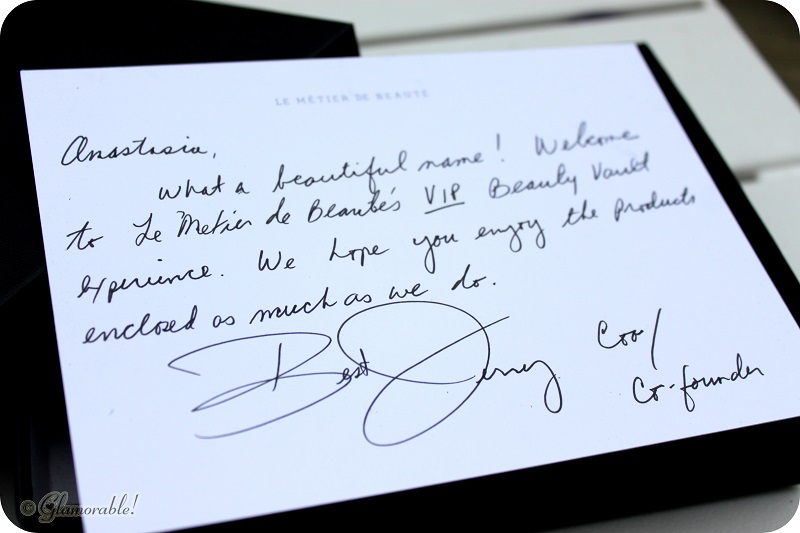 LE MÉTIER DE BEAUTÉ
Anastasia,
What a beautiful name! Welcome
to Le Metier de Beauté's VIP Beauty Vault
experience. We hope you enjoy the products
enclosed as much as we do.
Best Jerry COO/
Co-founder
© Glamorable!